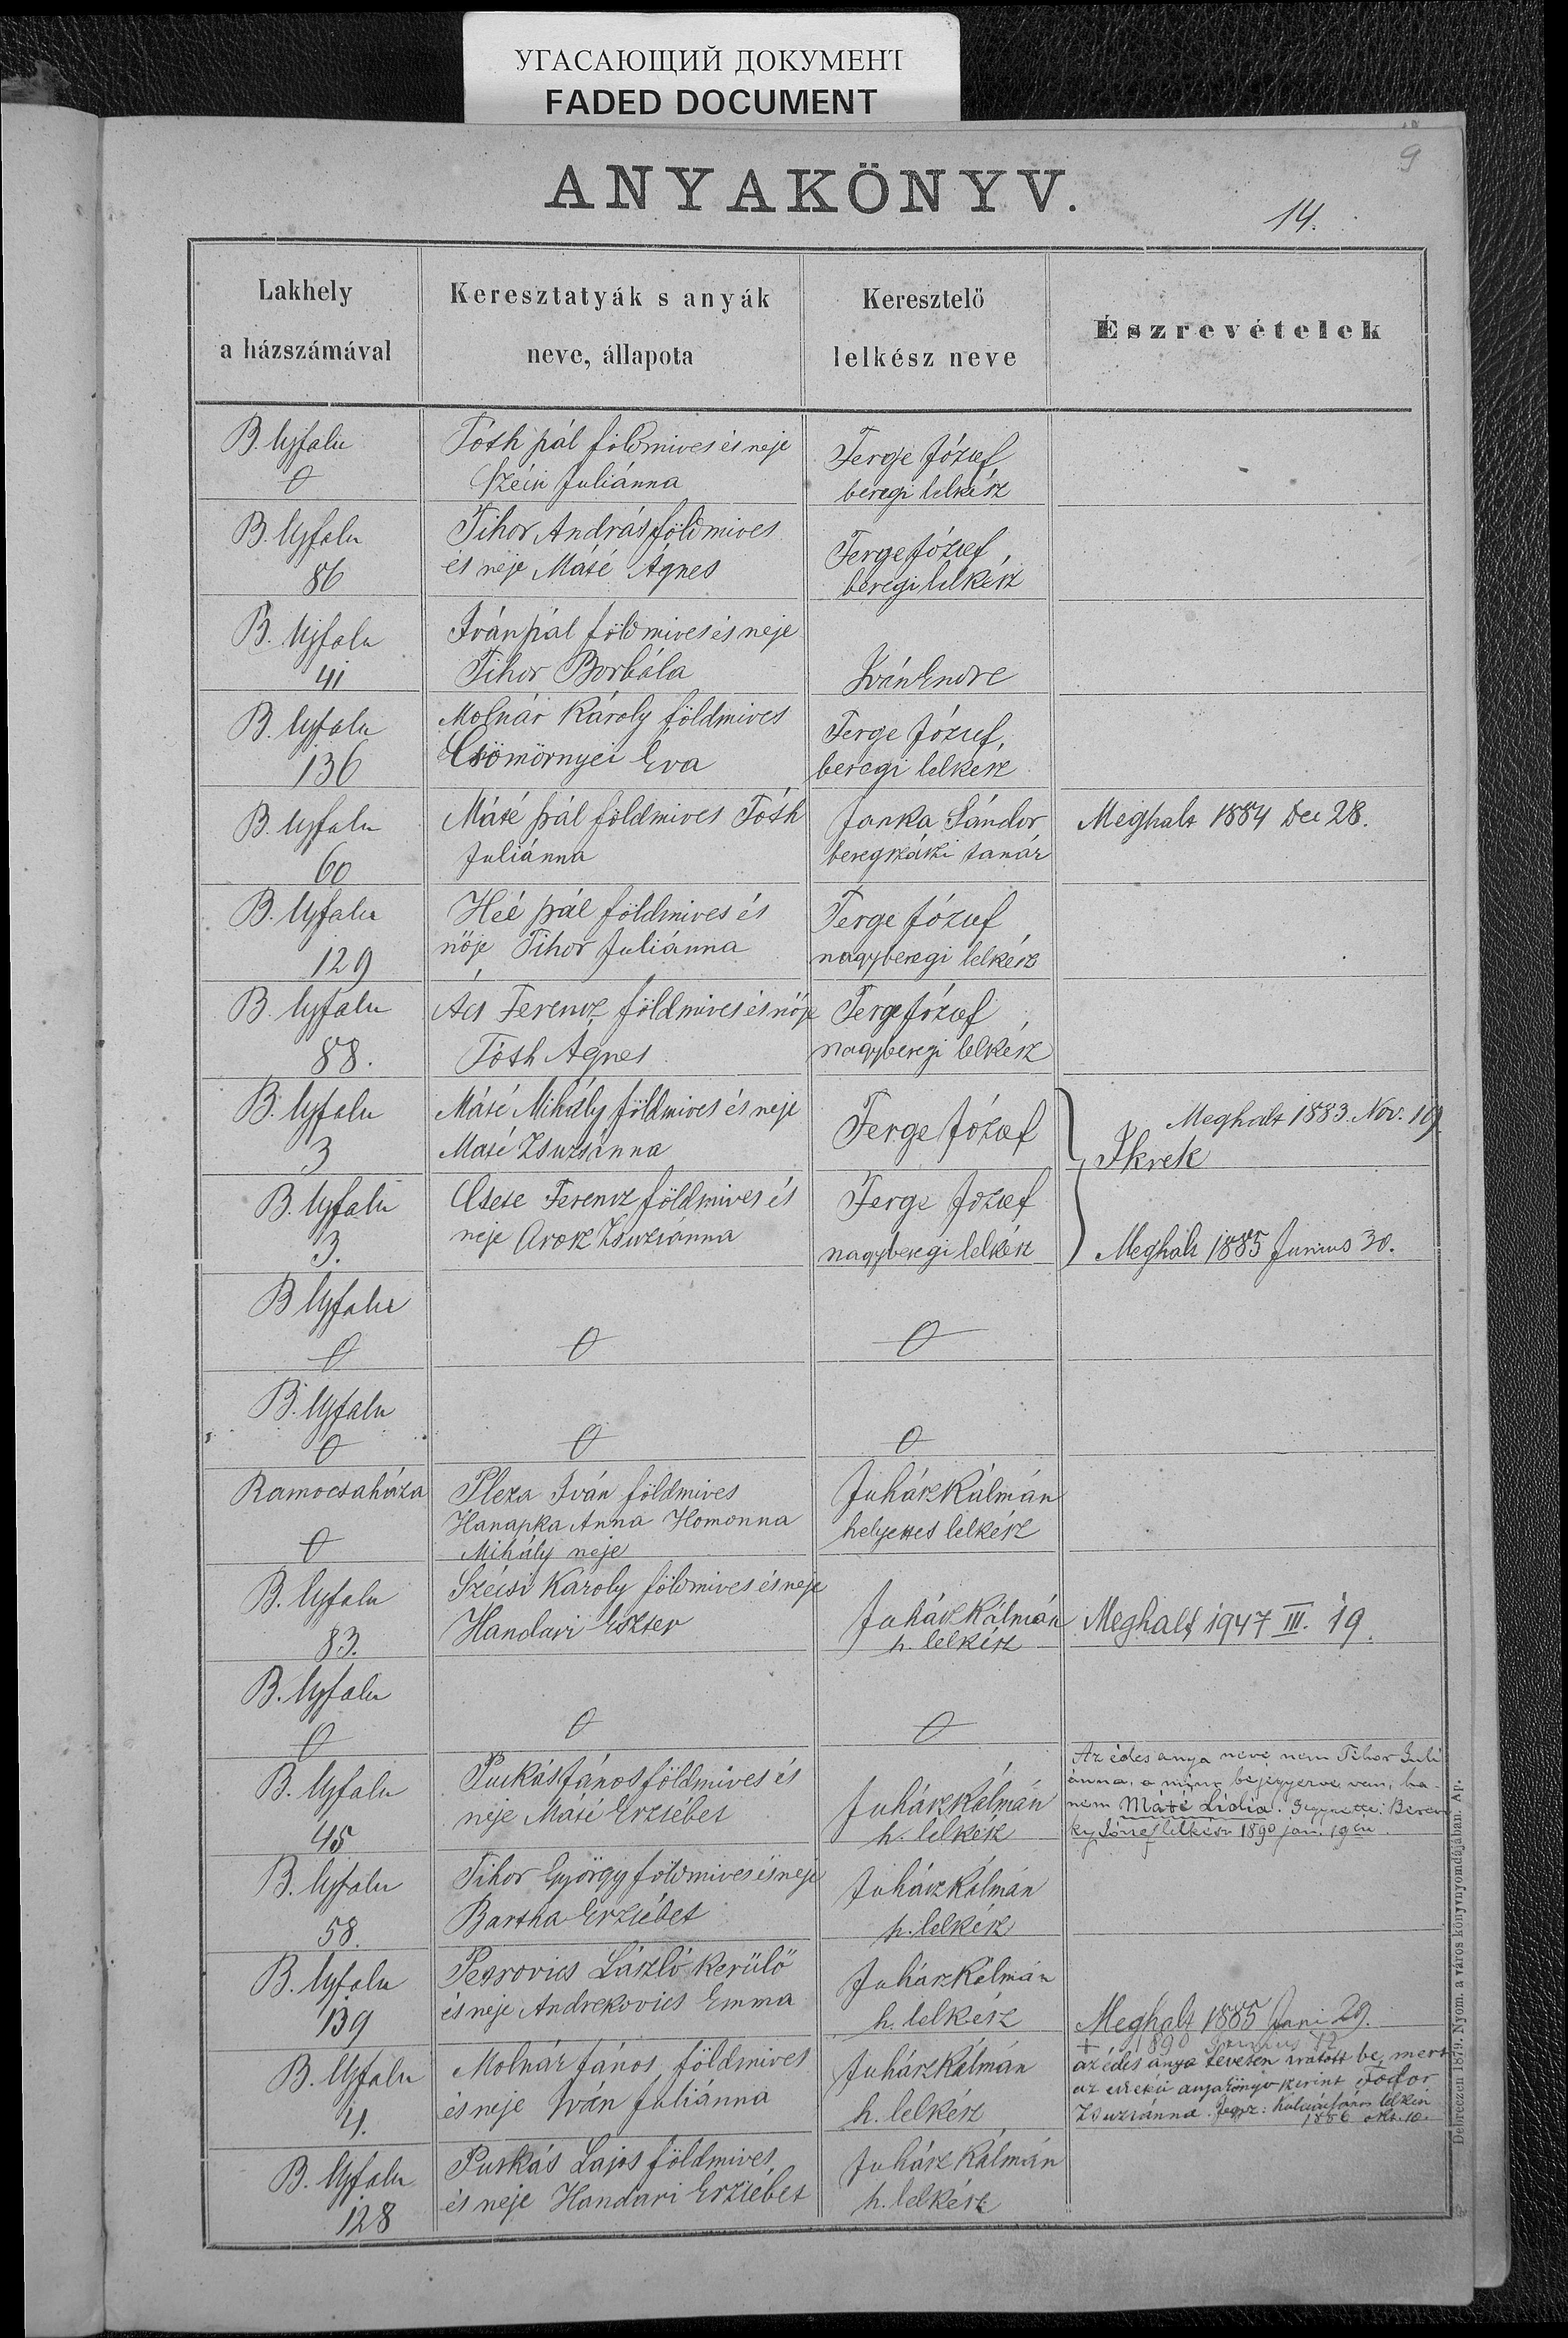 УГАСАЮЩИЙ ДОКУМЕНТ
FADED DOCUMENT
9
ANYAKÖNYV.
14.
Lakhely
a házszámával
Keresztatyák s anyák
neve, állapota
Keresztelő
lelkész neve
Észrevételek
B. Ujfalu
0
Tóth pál földmives és neje
Juliánna
Ferge József
beregi lelkész
B. Ujfalu
86
Tihor András földmives
és neje Máté Ágnes
Ferge József,
beregi lelkész
B. Ujfalu
41
Iván pál földmives és neje
Tihor Borbála
Iván Endre
B. Ujfalu
136
Molnár Károly földmives
Csömörnyei Éva
Ferge József,
beregi lelkész
B. Ujfalu
60
Máté pál földmives Tóth
Juliánna
Janka Sándor
beregszászi tanár
Meghalt 1884 Dec 28.
B. Ujfalu
129
Héé pál földmives és
nöje Tihor Juliánna
Ferge József
nagyberegi lelkész
B. Ujfalu
88.
Ács Ferencz földmives és nöje
Tóth Ágnes
Ferge József
nagyberegi lelkész
B. Ujfalu
3
Máté Mihály földmives és neje
Máté Zsuzsánna
Ferge József
Meghalt 1883. Nov. 19.
Ikrek
B. Ujfalu
3.
Csete Ferencz földmives és
neje Orosz Zsuzsánna
Ferge József
nagyberegi lelkész
Meghalt 1885 Junius 30.
B Ujfalu
0
0
0
B. Ujfalu
0
0
0
Ramocsaháza
0
Pleza Iván földmives
Hanapka Anna Homonna
Mihály neje
Juhász Kálmán
helyettes lelkész
B. Ujfalu
83.
Szécsi Károly földmives és neje
Handari Eszter
Juhász Kálmán
h. lelkész
Meghalt 1947 III. 19.
B. Ujfalu
0
0
0
B. Ujfalu
45
Puskás János földmives és
neje Máté Erzsébet
Juhász Kálmán
h. lelkész
Az édes anya neve nem Tihor Juli
ánna, a mint bejegyezve van, ha-
nem Máté Lidia.
József lelkész 1890 jan. 19én.
B. Ujfalu
58.
Tihor György földmives és neje
Bartha Erzsébet
Juhász Kálmán
h. lelkész
B. Ujfalu
139
Petrovics László kerülő
és neje Andrekovics Emma
Juhász Kálmán
h. lelkész
Meghalt 1885 Juni 29.
B. Ujfalu
4.
Molnár János földmives
és neje Iván Juliánna
Juhász Kálmán
h. lelkész
+ 1890 Junius 12
az édes anya tévesen iratott be, mert
az esketési anyakönyv szerint Fodor
Zsuzsánna. Jegyz: Kálmán János lelkész
1886 okt. 10.
B. Ujfalu
128
Puskás Lajos földmives
és neje Handari Erzsébet
Juhász Kálmán
h. lelkész
Debreczen 1879. Nyom. a város könyvnyomdájában. Ap.